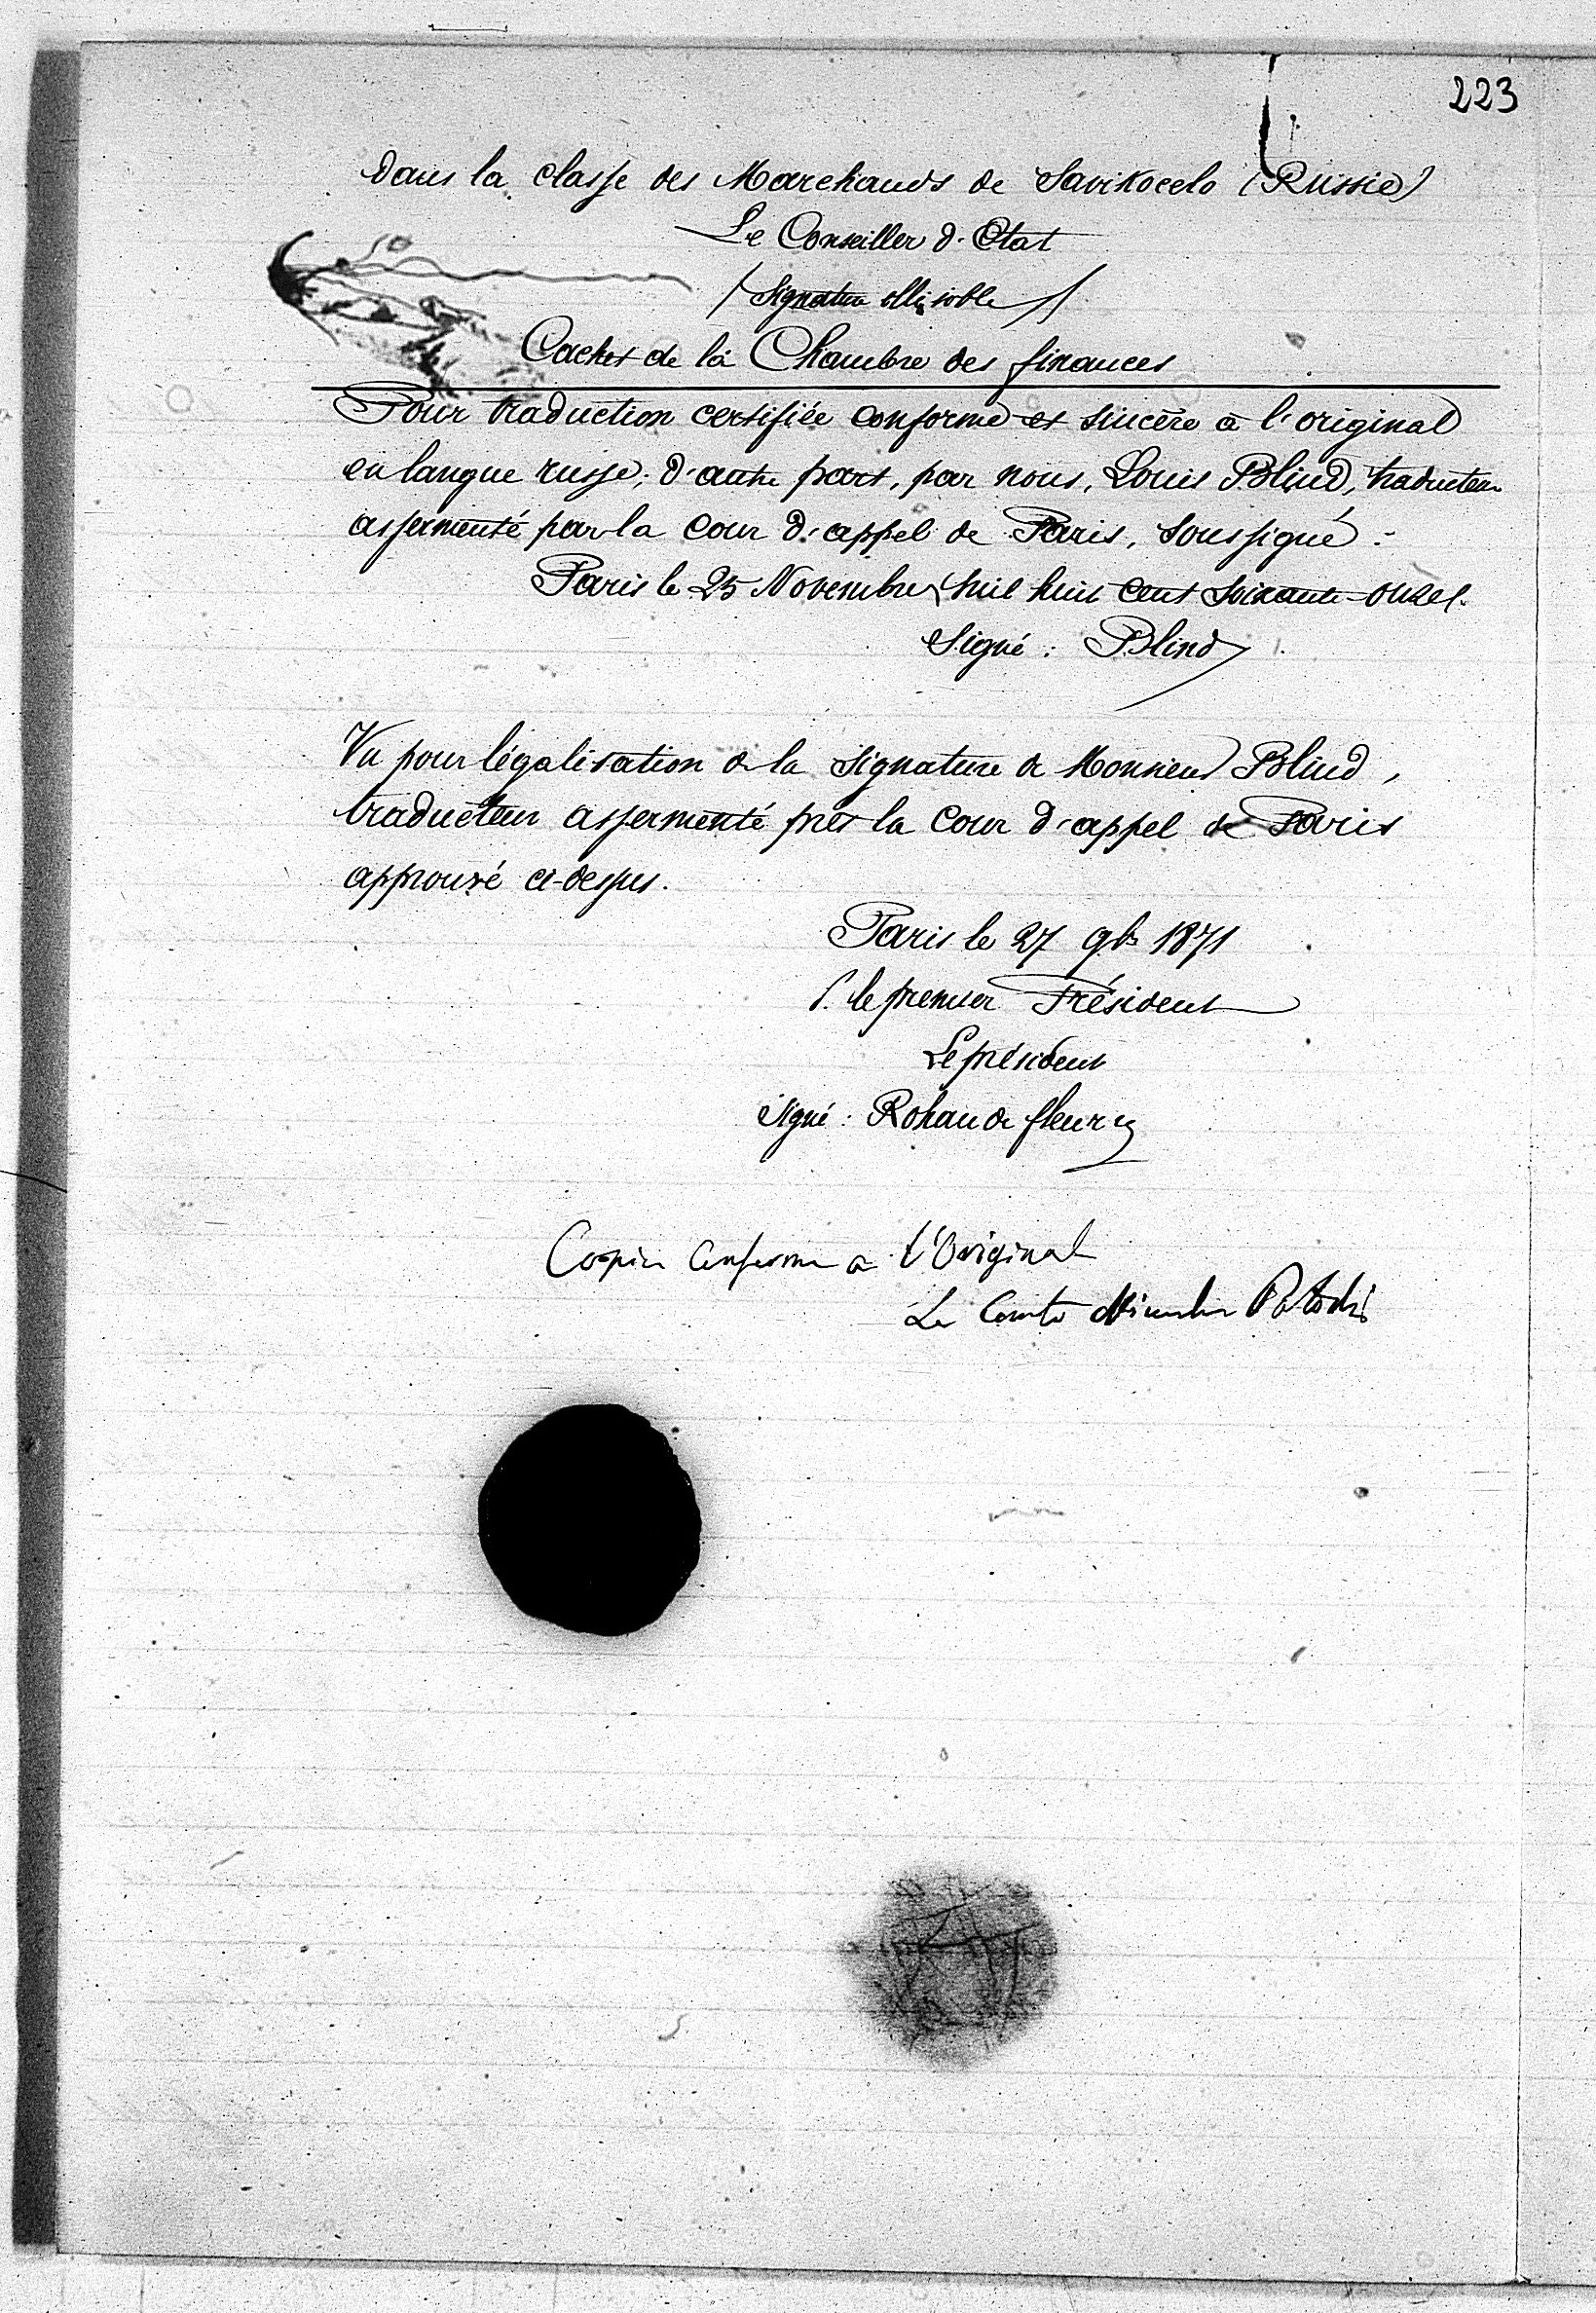 223
Dans la classe des Marchands de Savikocelo (Russie)
Le Conseiller d'Etat
/ Signature illisible /
Cachet de la Chambre des finances
Pour traduction certifiée conforme et sincère à l'original
en langue russe, d'autre part, par nous, Louis Blind, traducteur
assermenté par la Cour d'appel de Paris, soussigné.
Paris le 25 Novembre mil huit cent soixante-onze.
Signé : Blind
Vu pour légalisation de la signature de Monsieur Blind,
traducteur assermenté près la Cour d'appel de Paris
approuvé ci-dessus.
Paris le 27 9b 1871
P. le premier Président
Le président
Signé : Rohau de fleury
Copie conforme a l'Original
Le Comte Potocki